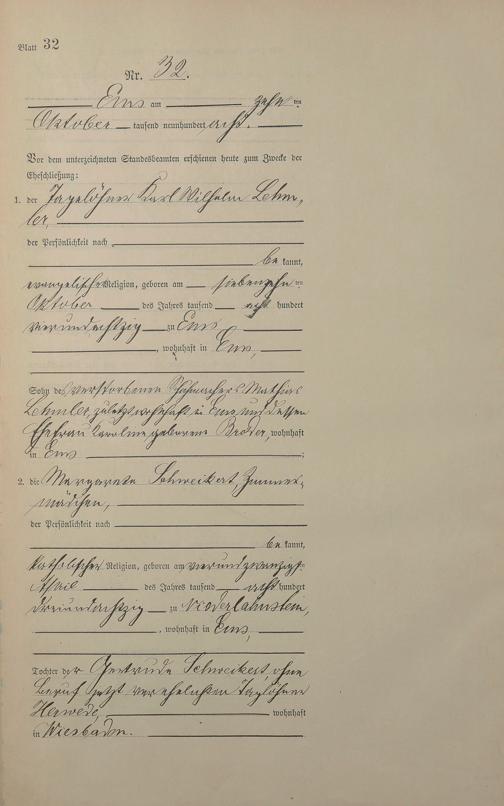 Blatt 32
Nr. 32.
Ems am zehn ten
Oktober tausend neunhundert acht.
Vor dem unterzeichneten Standesbeamten erschienen heute zum Zwecke der
Eheschließung:
1. der Tagelöhner Karl Wilhelm Lehm-
ler,
der Persönlichkeit nach
be kannt,
evangelischer Religion, geboren am siebenzehn ten
Oktober des Jahres tausend acht hundert
vierundachtzig zu Ems
, wohnhaft in Ems,
Sohn des verstorbenen Mathias
Lehmler, zuletzt wohnhaft in Ems und dessen
Ehefrau Karoline geborene Broder, wohnhaft
in Ems ;
2. die Margareta Schweikert, Zimmer-
mädchen,
der Persönlichkeit nach
be kannt,
katholischer Religion, geboren am vierundzwanzigst
April des Jahres tausend acht hundert
dreiundachtzig zu Niederlahnstein,
, wohnhaft in Ems,
Tochter der Gertrude Schweikert, ohne
Beruf, jetzt verehelichten Taglöhner
wohnhaft
in Wiesbaden.